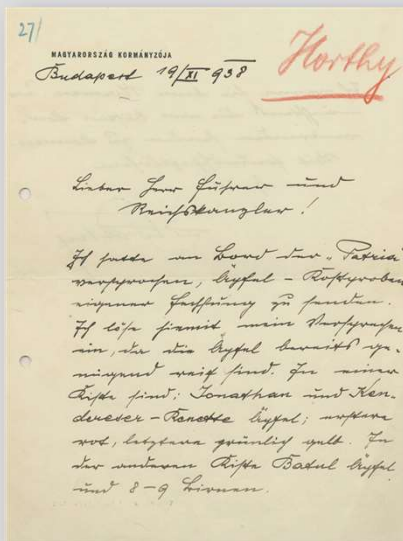 27/
Horthy
MAGYARORSZÁG KORMÁNYZÓJA
Budapest 19/XI 938
Lieber Herr Führer und
Reichskanzler!
Ich hatte an Bord der „Patria"
versprochen, Äpfel - Kostproben
eigener Fechsung zu senden.
Ich löse hiemit mein Versprechen
ein, da die Äpfel bereits ge-
nügend reif sind. In einer
Kiste sind: Jonathan und Ken-
dereser - Renette Äpfel; erstere
rot, letztere grünlich gelb. In
der anderen Kiste Batul Äpfel
und 8-9 Birnen.